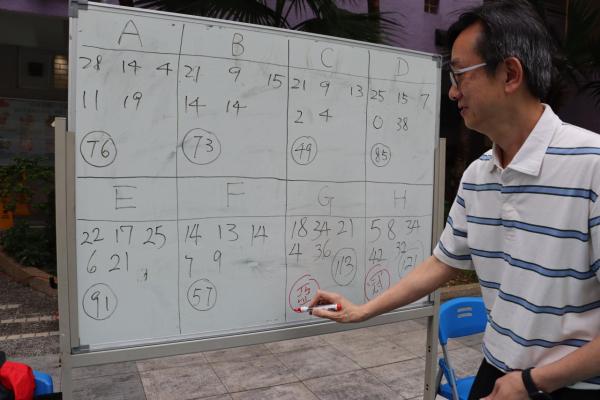 A
28 14 4
11 19
76
B
21 9 15
14 14
73
C
21 9 13
2 4
49
D
25 15 7
0 38
85
E
22 17 25
6 21
91
F
14 13 14
7 9
57
G
18 34 21
4 36
113
H
5 8 34
42 32
121